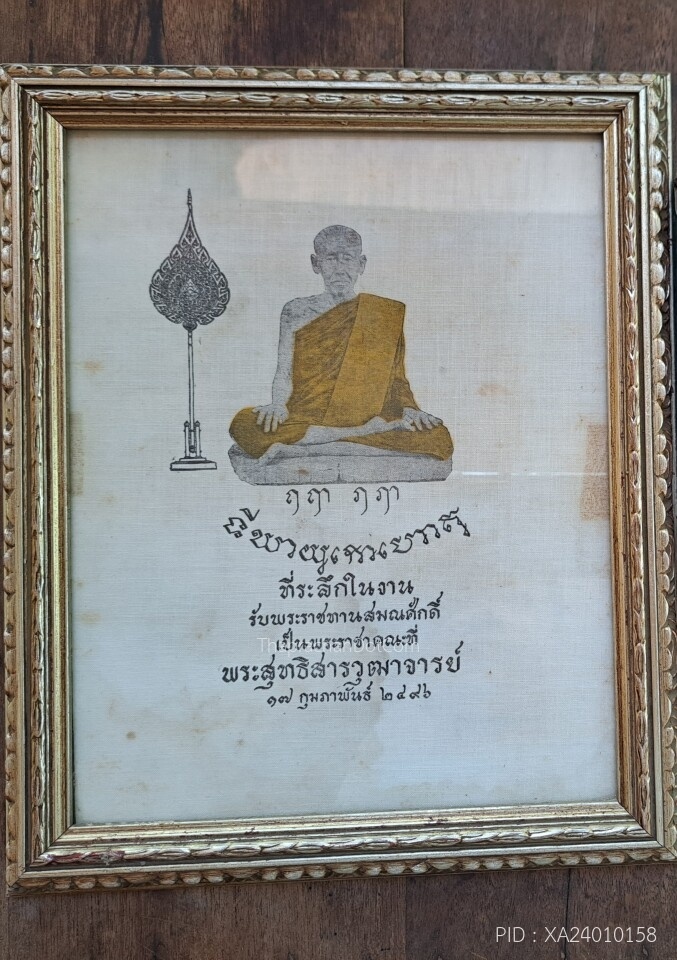 ฤ ฤา ภ ภา
ที่ระลึกในงาน
รับพระราชทานสมณศักดิ์
เป็นพระราชาคณะที่
พระสุทธิสารวุฒาจารย์
๑๗ กุมภาพันธ์ ๒๔๙๖
PID : XA24010158